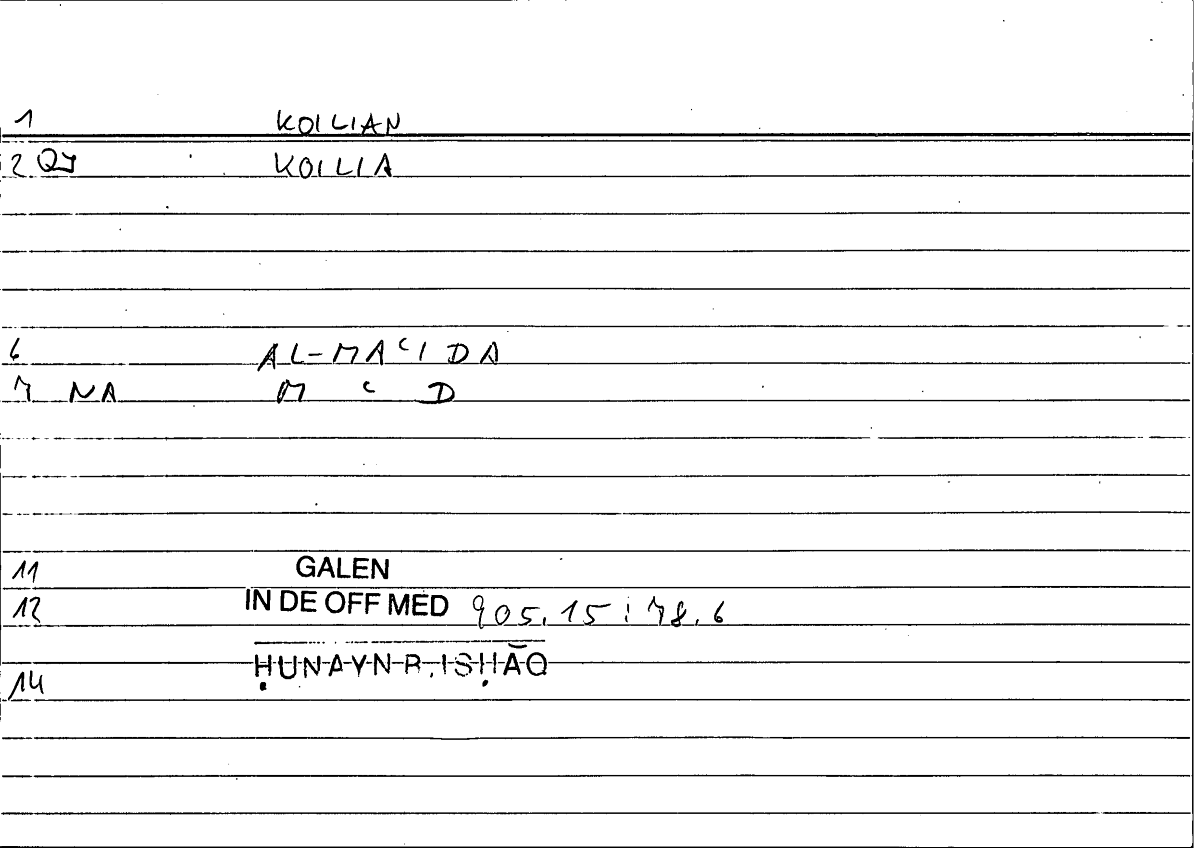 1 KOILIAN
2 QJ KOILIA
6 AL-MAʿIDA
7 NA M ʿ D
11 GALEN
12 IN DE OFF MED 905.15 : 78.6
ḤUNAYN B. ISḤĀQ
14